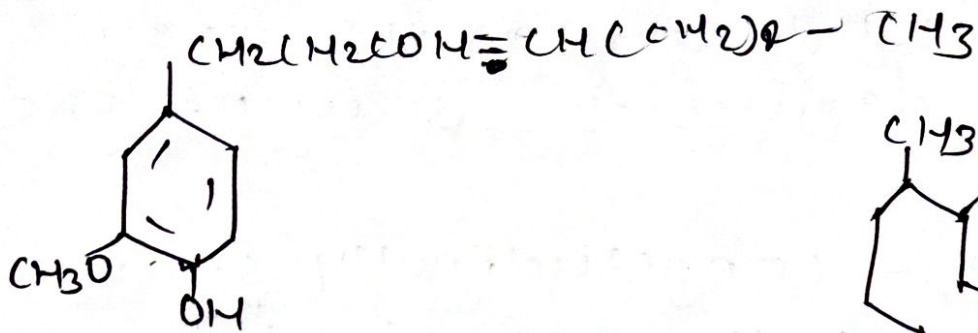 CH2CH2COH=CH(CH2)2 - CH3
CH3
CH3O
OH